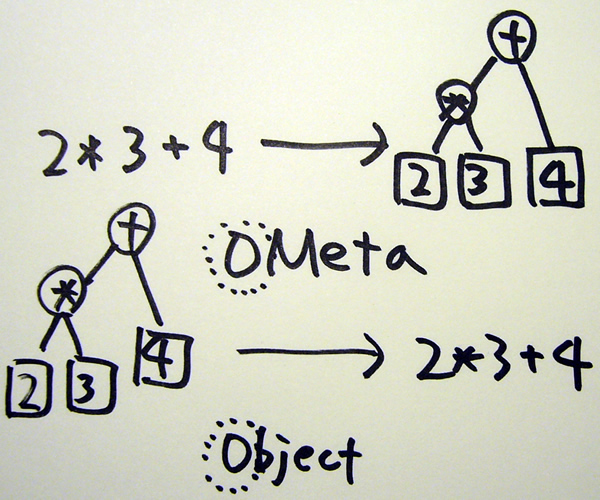 +
*
2*3+4 → 2 3 4
+
OMeta
*
4
2 3 → 2*3+4
Object